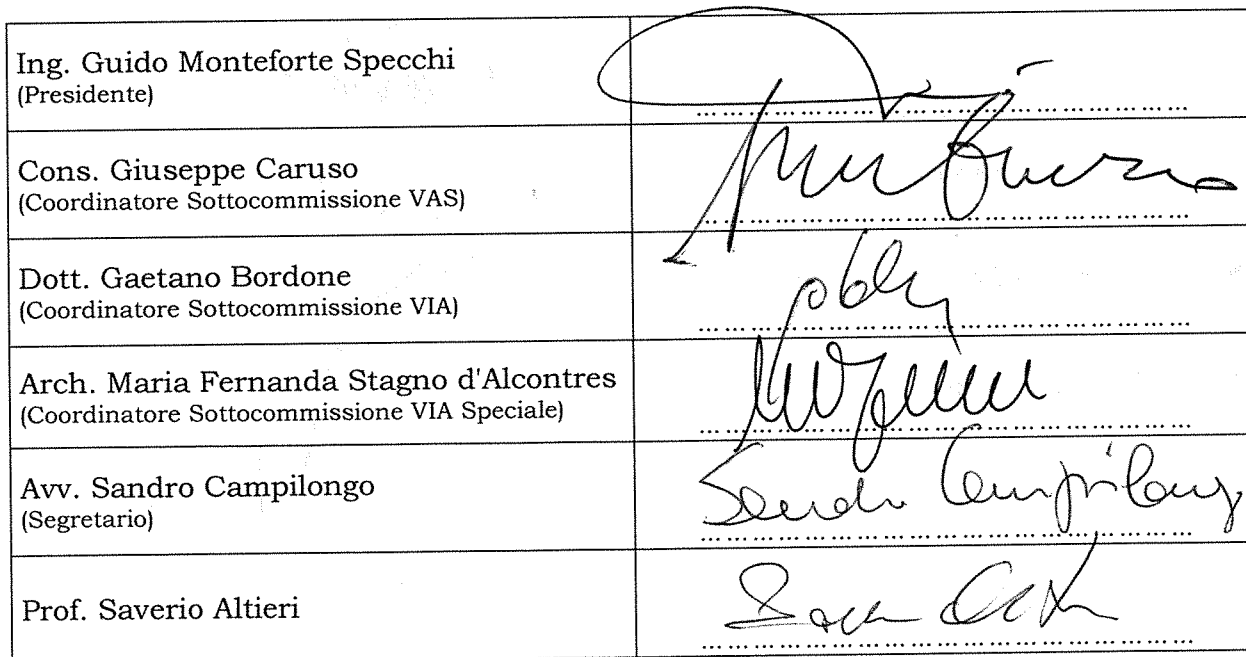 Ing. Guido Monteforte Specchi
(Presidente)
Cons. Giuseppe Caruso
(Coordinatore Sottocommissione VAS)
Dott. Gaetano Bordone
(Coordinatore Sottocommissione VIA)
Arch. Maria Fernanda Stagno d'Alcontres
(Coordinatore Sottocommissione VIA Speciale)
Avv. Sandro Campilongo
(Segretario)
Sandro Campilongo
Prof. Saverio Altieri